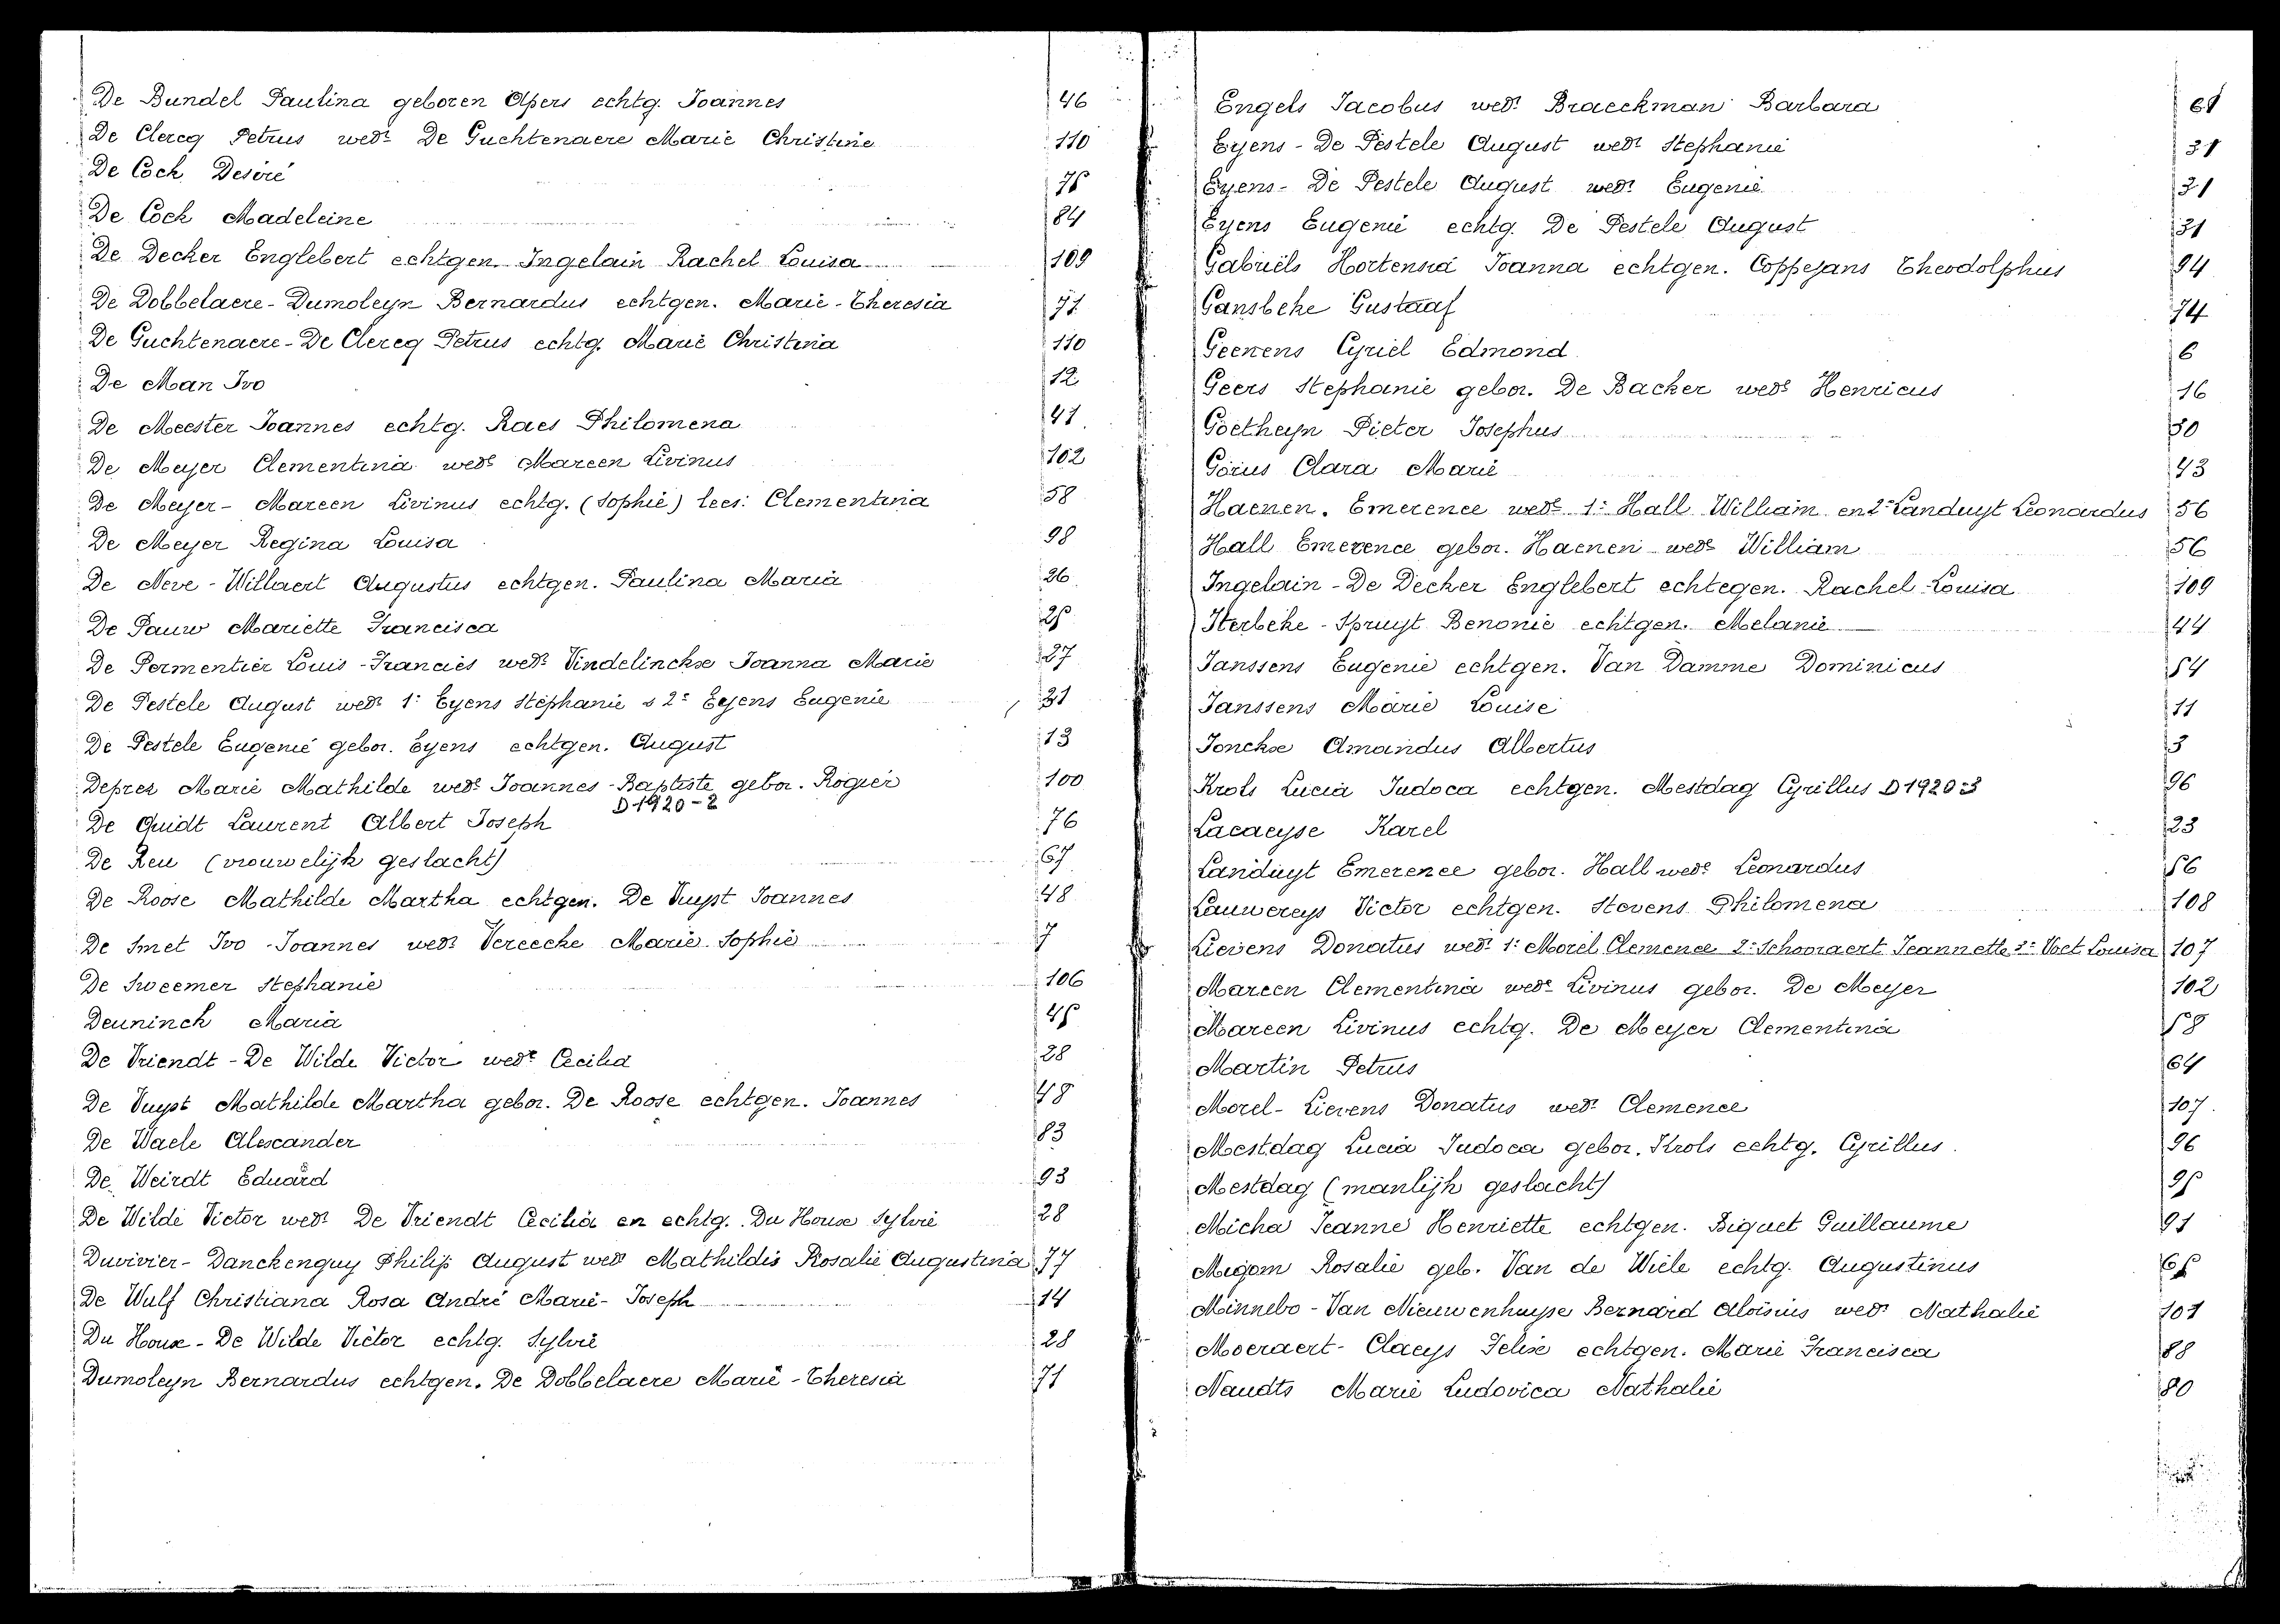 De Bundel Paulina geboren Apers echtg. Joannes 46
De Clercq Petrus wedr De Guchtenaere Marie Christine 110
De Cock Desiré 75
De Cock Madeleine 84
De Decker Englebert echtgen. Ingelain Rachel Louisa 109
De Dobbelaere-Dumoleyn Bernardus echtgen. Marie-Theresia 71
De Guchtenaere-De Clercq Petrus echtg. Marie Christina 110
De Man Ivo 12
De Meester Joannes echtg. Raes Philomena 41
De Meyer Clementina wede Mareen Livinus 102
De Meyer-Mareen Livinus echtg. (Sophie) lees: Clementina 58
De Meyer Regina Louisa 98
De Neve-Willaert Augustus echtgen. Paulina Maria 26
De Pauw Mariette Francisca 25
De Permentier Louis-Francies wedr Vindelinckx Joanna Marie 27
De Pestele August wedr 1: Eyens Stephanie & 2: Eyens Eugenie 31
De Pestele Eugenie gebor. Eyens echtgen. August 13
Deprez Marie Mathilde wede Joannes-Baptiste gebor. Rogier 100
D 1920-2
De Quidt Laurent Albert Joseph 76
De Reu (vrouwelijk geslacht) 67
De Roose Mathilde Martha echtgen. De Vuyst Joannes 48
De Smet Ivo-Joannes wedr Vereecke Marie Sophie 7
De Sweemer Stephanie 106
Deuninck Maria 45
De Vriendt-De Wilde Victor wedr Cecilia 28
De Vuyst Mathilde Martha gebor. De Roose echtgen. Joannes 48
De Waele Alexander 83
De Weirdt Eduard 93
De Wilde Victor wedr De Vriendt Cecilia en echtg. Du Houx Sylvie 28
Duvivier-Danckenguy Philip August wedr Mathildis Rosalie Augustina 77
De Wulf Christiana Rosa André Marie-Joseph 14
Du Houx-De Wilde Victor echtg. Sylvie 28
Dumoleyn Bernardus echtgen. De Dobbelaere Marie-Theresia 71
Engels Jacobus wedr Braeckman Barbara 61
Eyens-De Pestele August wedr Stephanie 31
Eyens-De Pestele August wedr Eugenie 31
Eyens Eugenie echtg. De Pestele August 31
Gabriëls Hortensia Joanna echtgen. Coppejans Theodolphus 94
Gansbeke Gustaaf 74
Geerens Cyriel Edmond 6
Geers Stephanie gebor. De Backer wede Henricus 16
Goetheyn Pieter Josephus 50
Gorus Clara Marie 43
Haenen. Emerence wede 1: Hall William en 2e Landuyt Leonardus 56
Hall Emerence gebor. Haenen wede William 56
Ingelain-De Decker Englebert echtegen. Rachel-Louisa 109
Iterbeke-Spruyt Benonie echtgen. Melanie 44
Janssens Eugenie echtgen. Van Damme Dominicus 54
Janssens Marie Louise 11
Jonckx Amandus Albertus 3
Krols Lucia Judoca echtgen. Mestdag Cyrillus D 1920:3 96
Lacaeyse Karel 23
Landuyt Emerence gebor. Hall wede Leonardus 56
Lauwereys Victor echtgen. Stevens Philomena 108
Lievens Donatus wedr 1: Morel Clemence 2: Schooraert Jeannette 3: Voet Louisa 107
Mareen Clementina wede Livinus gebor. De Meyer 102
Mareen Livinus echtg. De Meyer Clementina 58
Martin Petrus 64
Morel-Lievens Donatus wedr Clemence 107
Mestdag Lucia Judoca gebor. Krols echtg. Cyrillus 96
Mestdag (manlijk geslacht) 95
Micha Jeanne Henriette echtgen. Biquet Guillaume 91
Migom Rosalie geb. Van de Wiele echtg. Augustinus 65
Minnebo-Van Nieuwenhuyse Bernard Aloïsius wedr Nathalie 101
Moeraert-Claeys Felix echtgen. Marie Francisca 88
Naudts Marie Ludovica Nathalie 80